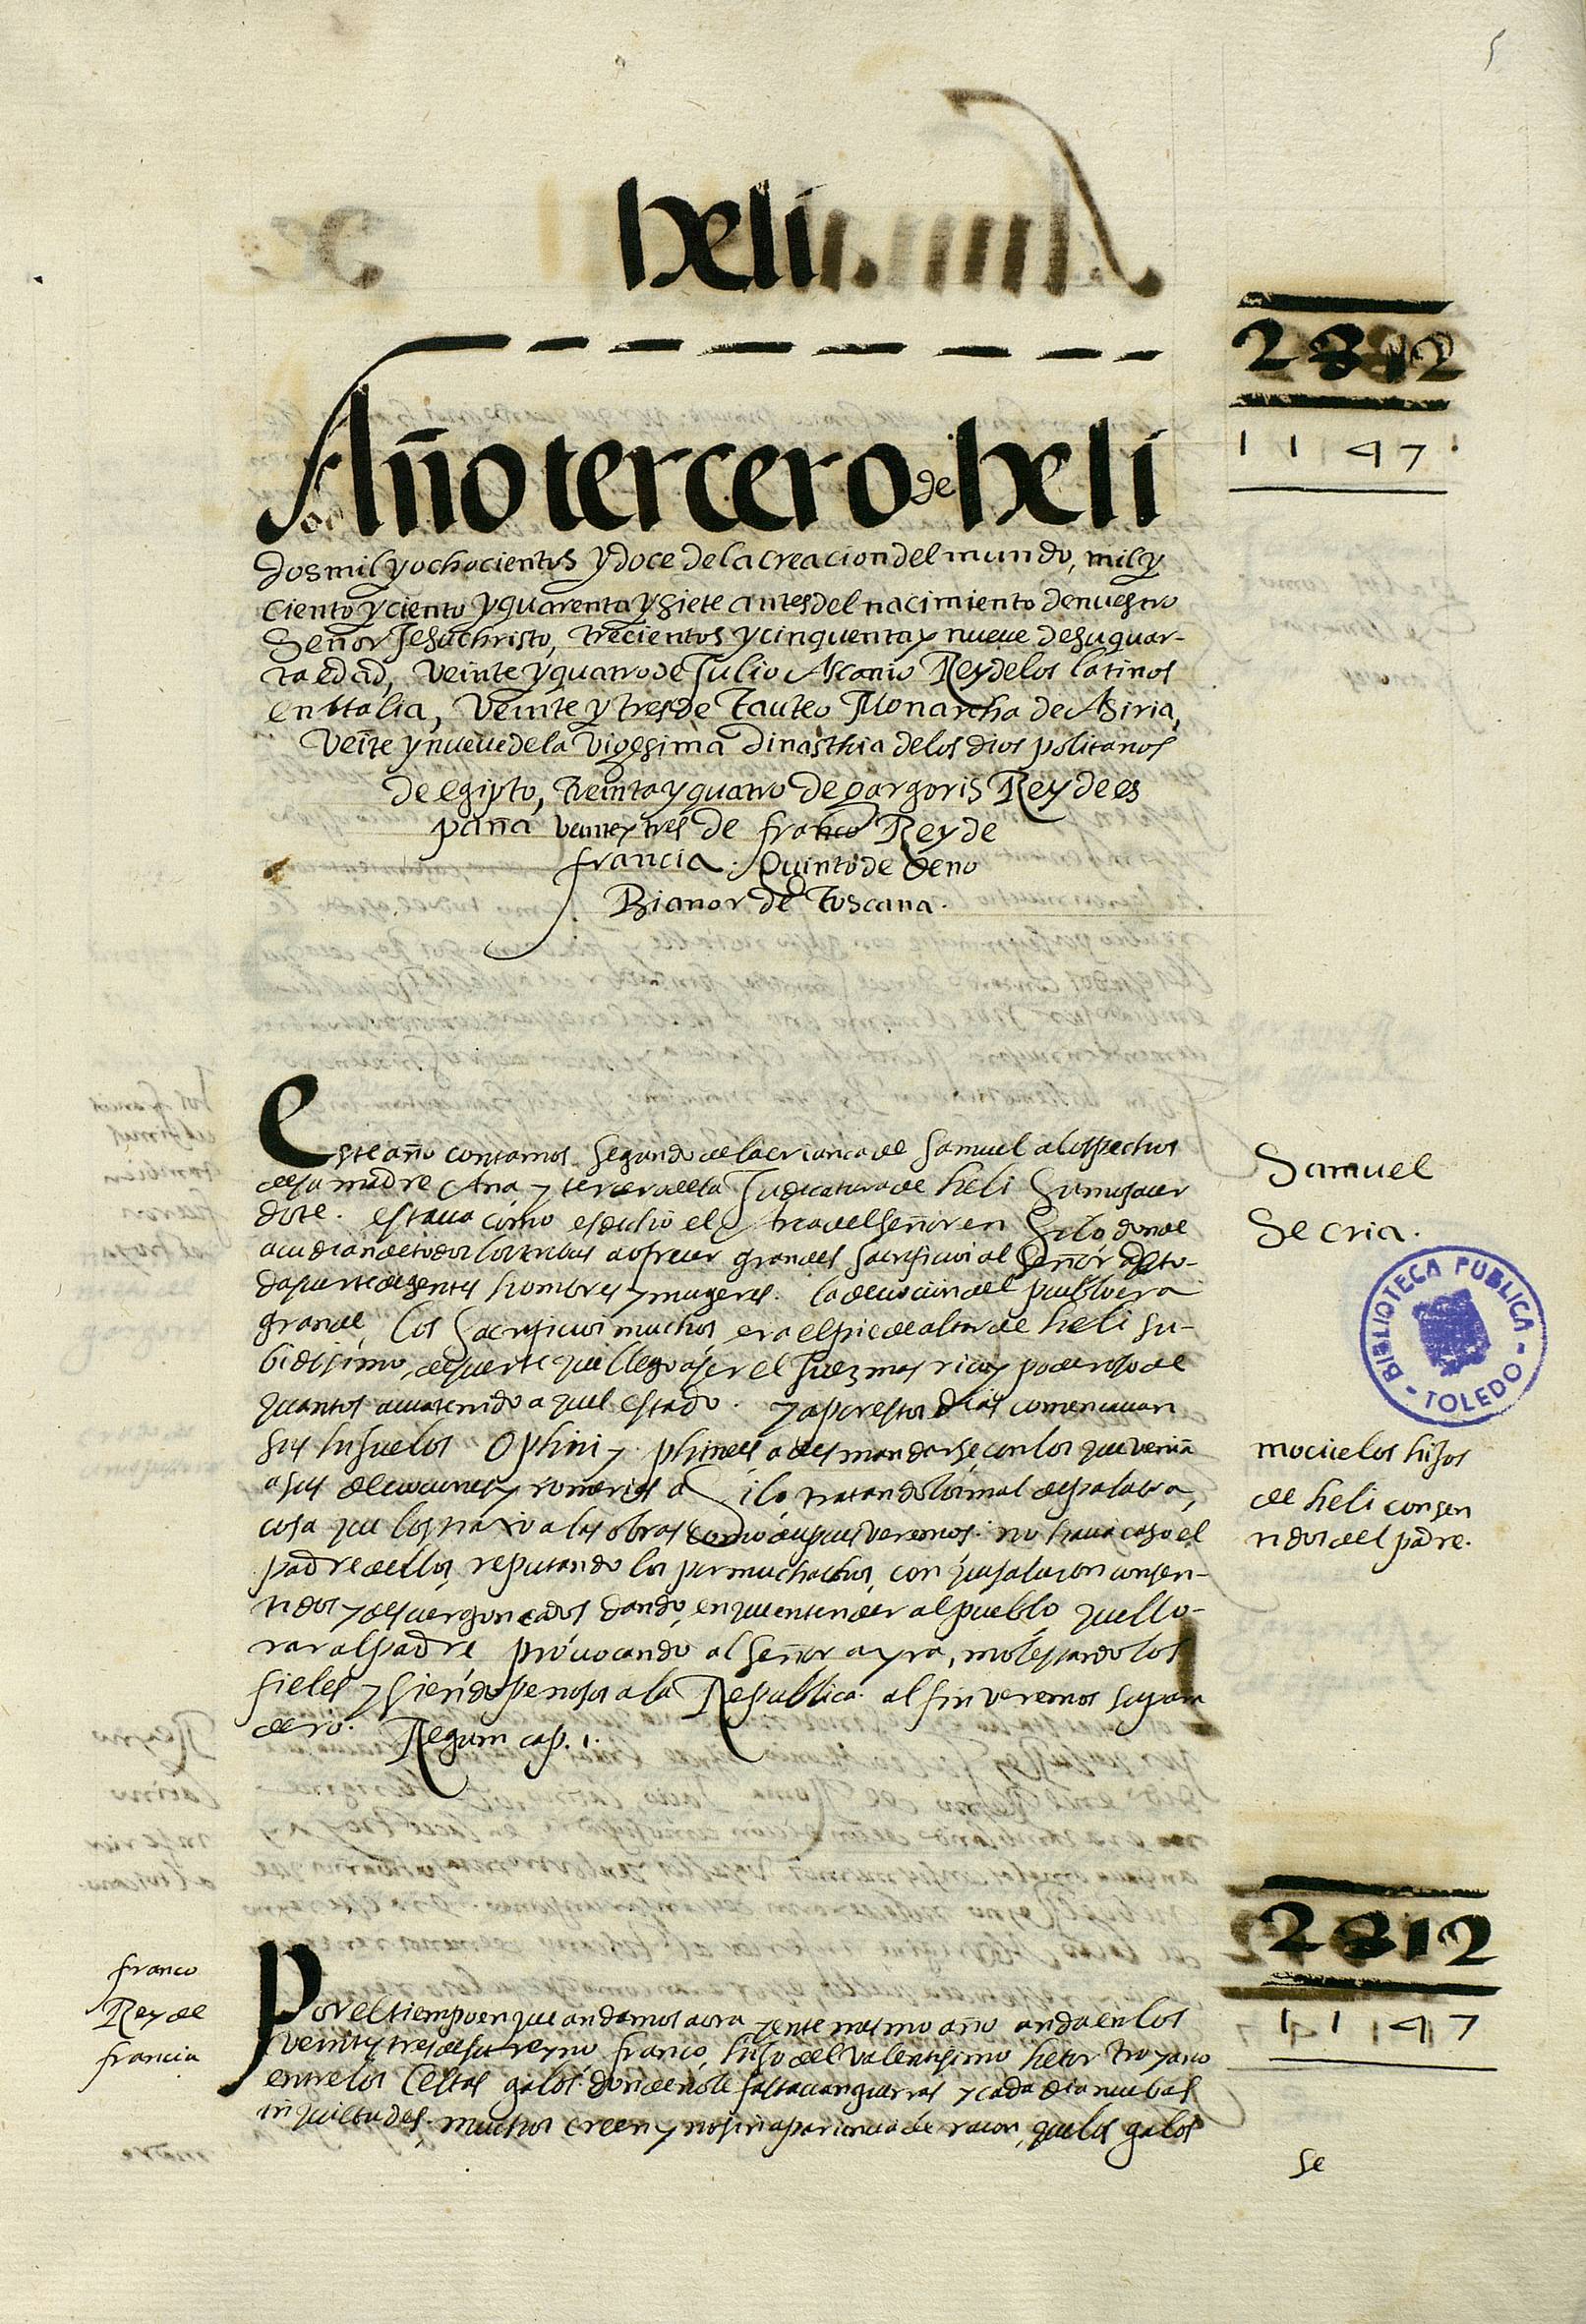 5
heli
2812
1147
Año tercero de heli
dos mil y ochocientos y doce de la creacion del mundo, mil y
ciento y ciento y quarenta y siete antes del nacimiento de nuestro
Señor Jesuchristo, trecientos y cinquenta y nueve de su quar-
ta edad, veinte y quatro de Julio Ascanio Rey de los latinos
en Italia, Veinte y tres de Tauteo Monarcha de Asiria,
veīte y nueve de la vigesima dinasthia de los dios politanos
de egipto, treinta y quatro de gargoris Rey de es
paña veinte y tres de franco Rey de
francia. Quinto de Oeno
Bianor de Toscana.
Este año contamos segundo de la criança de Samuel a los pechos
de su madre Ana y tercero de la Judicatura de heli Sumo sacer
dote. estava como es dicho el Arca del Señor en Silo donde
acudian de todos los tribus a ofrecer grandes sacrificios al Señor de to-
da suerte de gentes hombres y mugeres. la devocion del pueblo era
grande, los Sacrificios muchos, era el pie de altar de heli su-
bidissimo, de suerte que llego a ser el Juez mas rico y poderoso de
quantos avia tenido aquel estado. y a por estos dias comencavan
sus hijuelos Ophini y phinees a desmandarse con los que veniā
a sus devociones y romerias a Silo tratandolos mal de palabra,
cosa que los traxo a las obras como despues veremos. no hacia caso el
padre dellos, reputando los por muchachos, con que salieron consen-
tidos y desvergoncados dando, en que entender al pueblo, que llo-
rar al padre provocando al Señor a yra, molestando los
fieles y siendo penosos a la Republica. al fin veremos su para
dero. Regum cap. 1.
Samuel
se cria.
BIBLIOTECA PUBLICA - TOLEDO -
mocuelos hijos
de heli consen
tidos del padre.
2812
1147
franco
Rey de
francia
Por el tiempo en que andamos aora y ente mesmo año anda en los
veinte y tres de su reyno franco, hijo del valentissimo hetor troyano
entre los Celtas galos. donde no le faltavan guerras y cada dia nuebas
inquietudes. muchos creen y no sin aparicncia de racon, que los galos
se